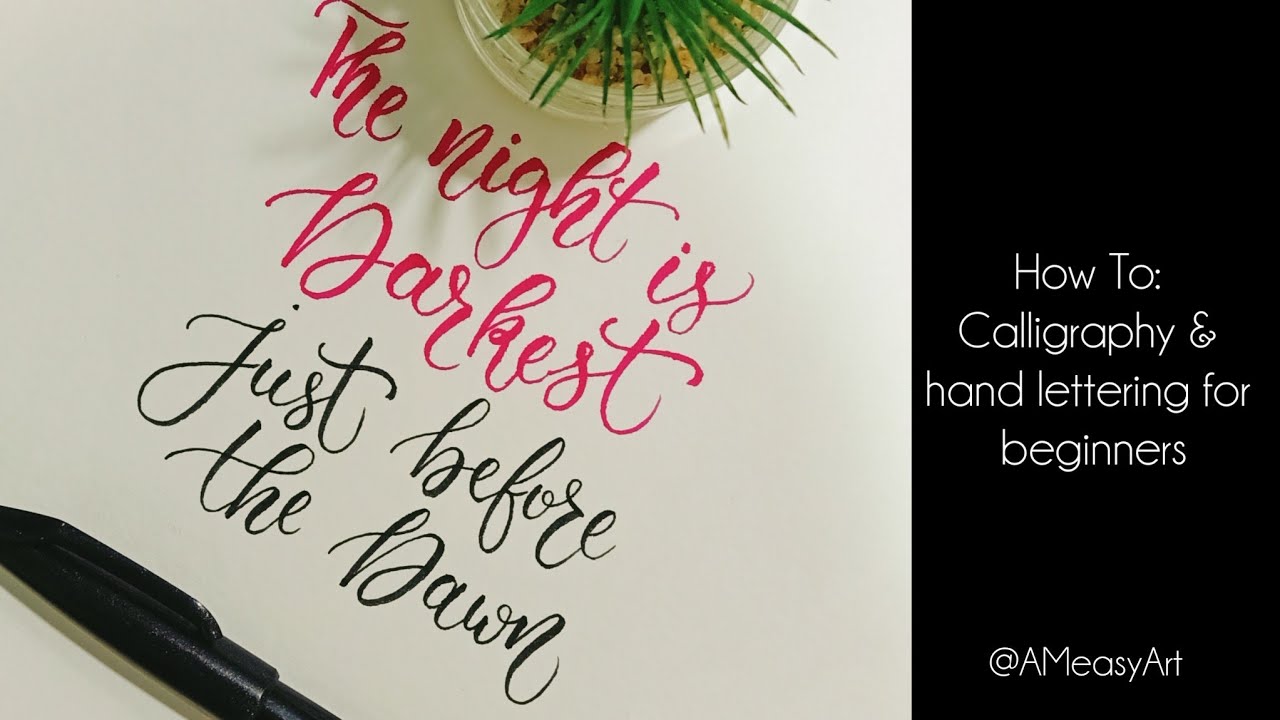 The night is
Darkest
just before
the Dawn
How To:
Calligraphy &
hand lettering for
beginners
@AMeasyArt